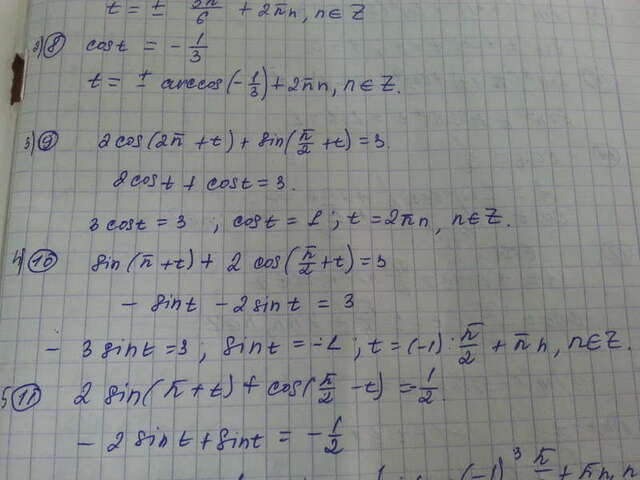 t = ± 5π/6 + 2πn, n∈Z
2) 8 cost = - 1/3
t = ± arccos(-1/3) + 2πn, n∈Z.
3) 9 2cos(2π + t) + sin(π/2 + t) = 3.
2cost + cost = 3.
3cost = 3 ; cost = 1 ; t = 2πn, n∈Z.
4) 10 sin(π + t) + 2 cos(π/2 + t) = 3
- sint - 2sint = 3
- 3sint = 3 ; sint = -1 ; t = (-1) · π/2 + πn, n∈Z.
5 11 2 sin(π + t) + cos(π/2 - t) = 1/2.
- 2sint + sint = - 1/2
(-1)³ π + πn, n